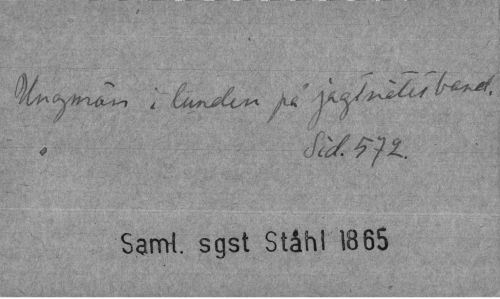 Ungmön i lunden på jagtnätetsband.
Sid. 572.
Saml. sgst Ståhl 1865